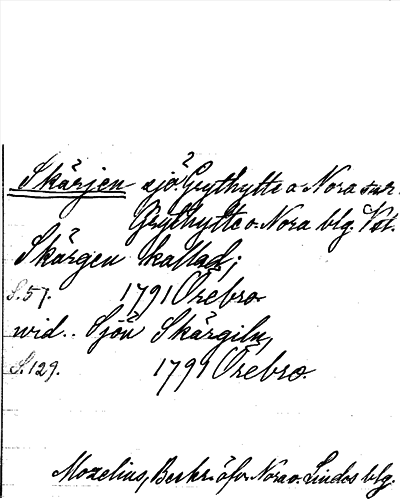 Skärjen sjö. Grythytte o Nora snr.
Grythytte o. Nora blg. Vstl.
Skärgen kallad;
S. 57. 1791 Örebro
wid.. Sjön Skärgiln,
S. 129. 1791 Örebro.
Mozelius, Beskr. öfv. Nora o. Lindes blg.